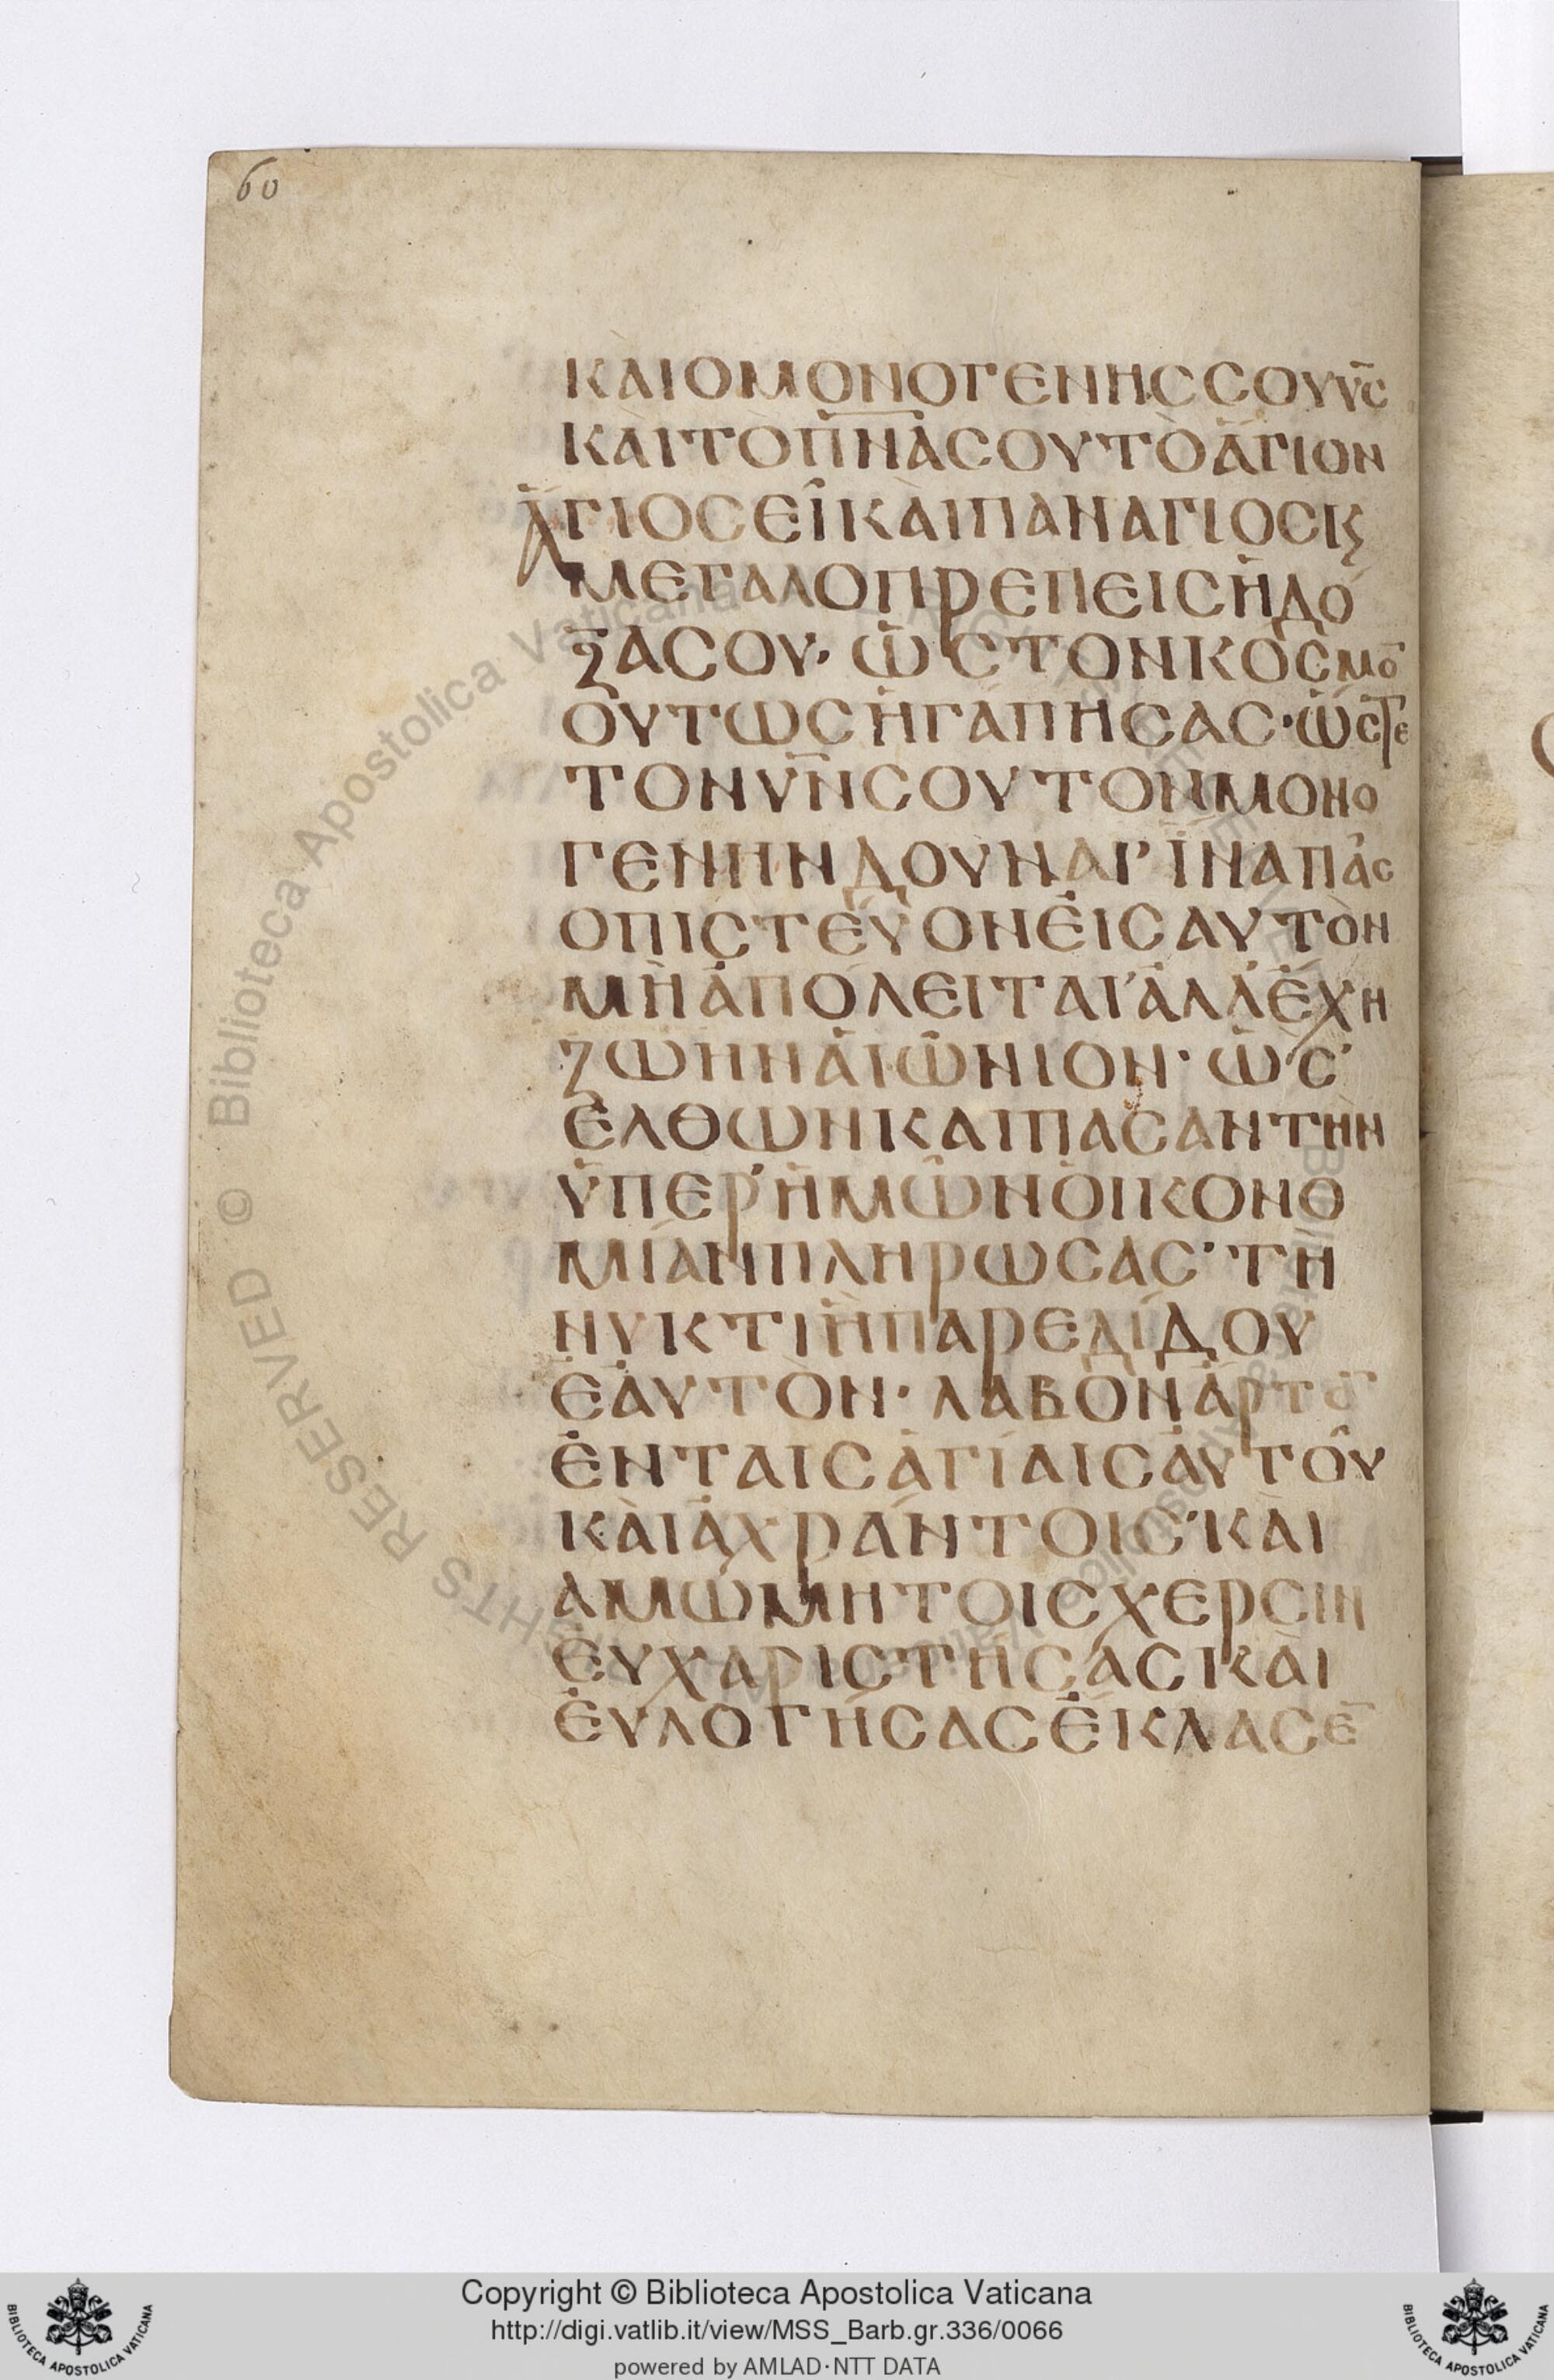 60
ΚΑΙΟΜΟΝΟΓΕΝΗϹϹΟΥΥ̅Ϲ̅
ΚΑῚΤΟΠ̅Ν̅Α̅ϹΟΥΤῸἍΓΙΟΝ
ἍΓΙΟϹΕΙ͂ΚΑῚΠΑΝΑΓΙΟϹΚϚ
ΜΕΓΑΛΟΠΡΕΠΕΙϹἩΔΟ
ΞΑϹΟΥ· ὩϹΤΟΝΚΟϹΜΟ̅
ΟΥΤΩϹἨΓΆΠΗϹΑϹ·ὭϹΤΕ
ΤΟΝΥ̅Ν̅ϹΟΥΤΟΝΜΟΝΟ
ΓΕΝΗΝΔΟΥΝΑΙ·ἽΝΑΠΑϹ
ΟΠΙϹΤΕΎΟΝἘΙϹΑΥΤῸΝ
ΜῊἈΠΟΛΕΙΤΑΙ·ἈΛΛἜΧΗ
ΖΩΗΝΑἸΏΝΙΟΝ· ὩϹ·
ἘΛΘΩΝΚΑΙΠΑϹΑΝΤῊΝ
ΫΠΕΡἩΜΩ͂ΝὈΙΚΟΝΟ
ΜΊΑΝΠΛΗΡΩϹΑϹ·ΤΗ
ΝΥΚΤΙἩΠΑΡΕΔΊΔΟΥ
ἙΑΥΤῸΝ· ΛΑΒΟΝἌΡΤΟ̅
ἘΝΤΑΙϹἉΓΊΑΙϹἈΥΤΟΥ͂
ΚΑῚἈΧΡΆΝΤΟΙϹ·ΚΑῚ
ΑΜΩΜΉΤΟΙϹΧΕΡϹΙΝ
ἘΥΧΑΡΙϹΤΉϹΑϹΚΑῚ
ἘΥΛΟΓΉϹΑϹἜΚΛΑϹΕ̅
Copyright © Biblioteca Apostolica Vaticana
http://digi.vatlib.it/view/MSS_Barb.gr.336/0066
powered by AMLAD·NTT DATA
BIBLIOTECA APOSTOLICA VATICANA
BIBLIOTECA APOSTOLICA VATICANA